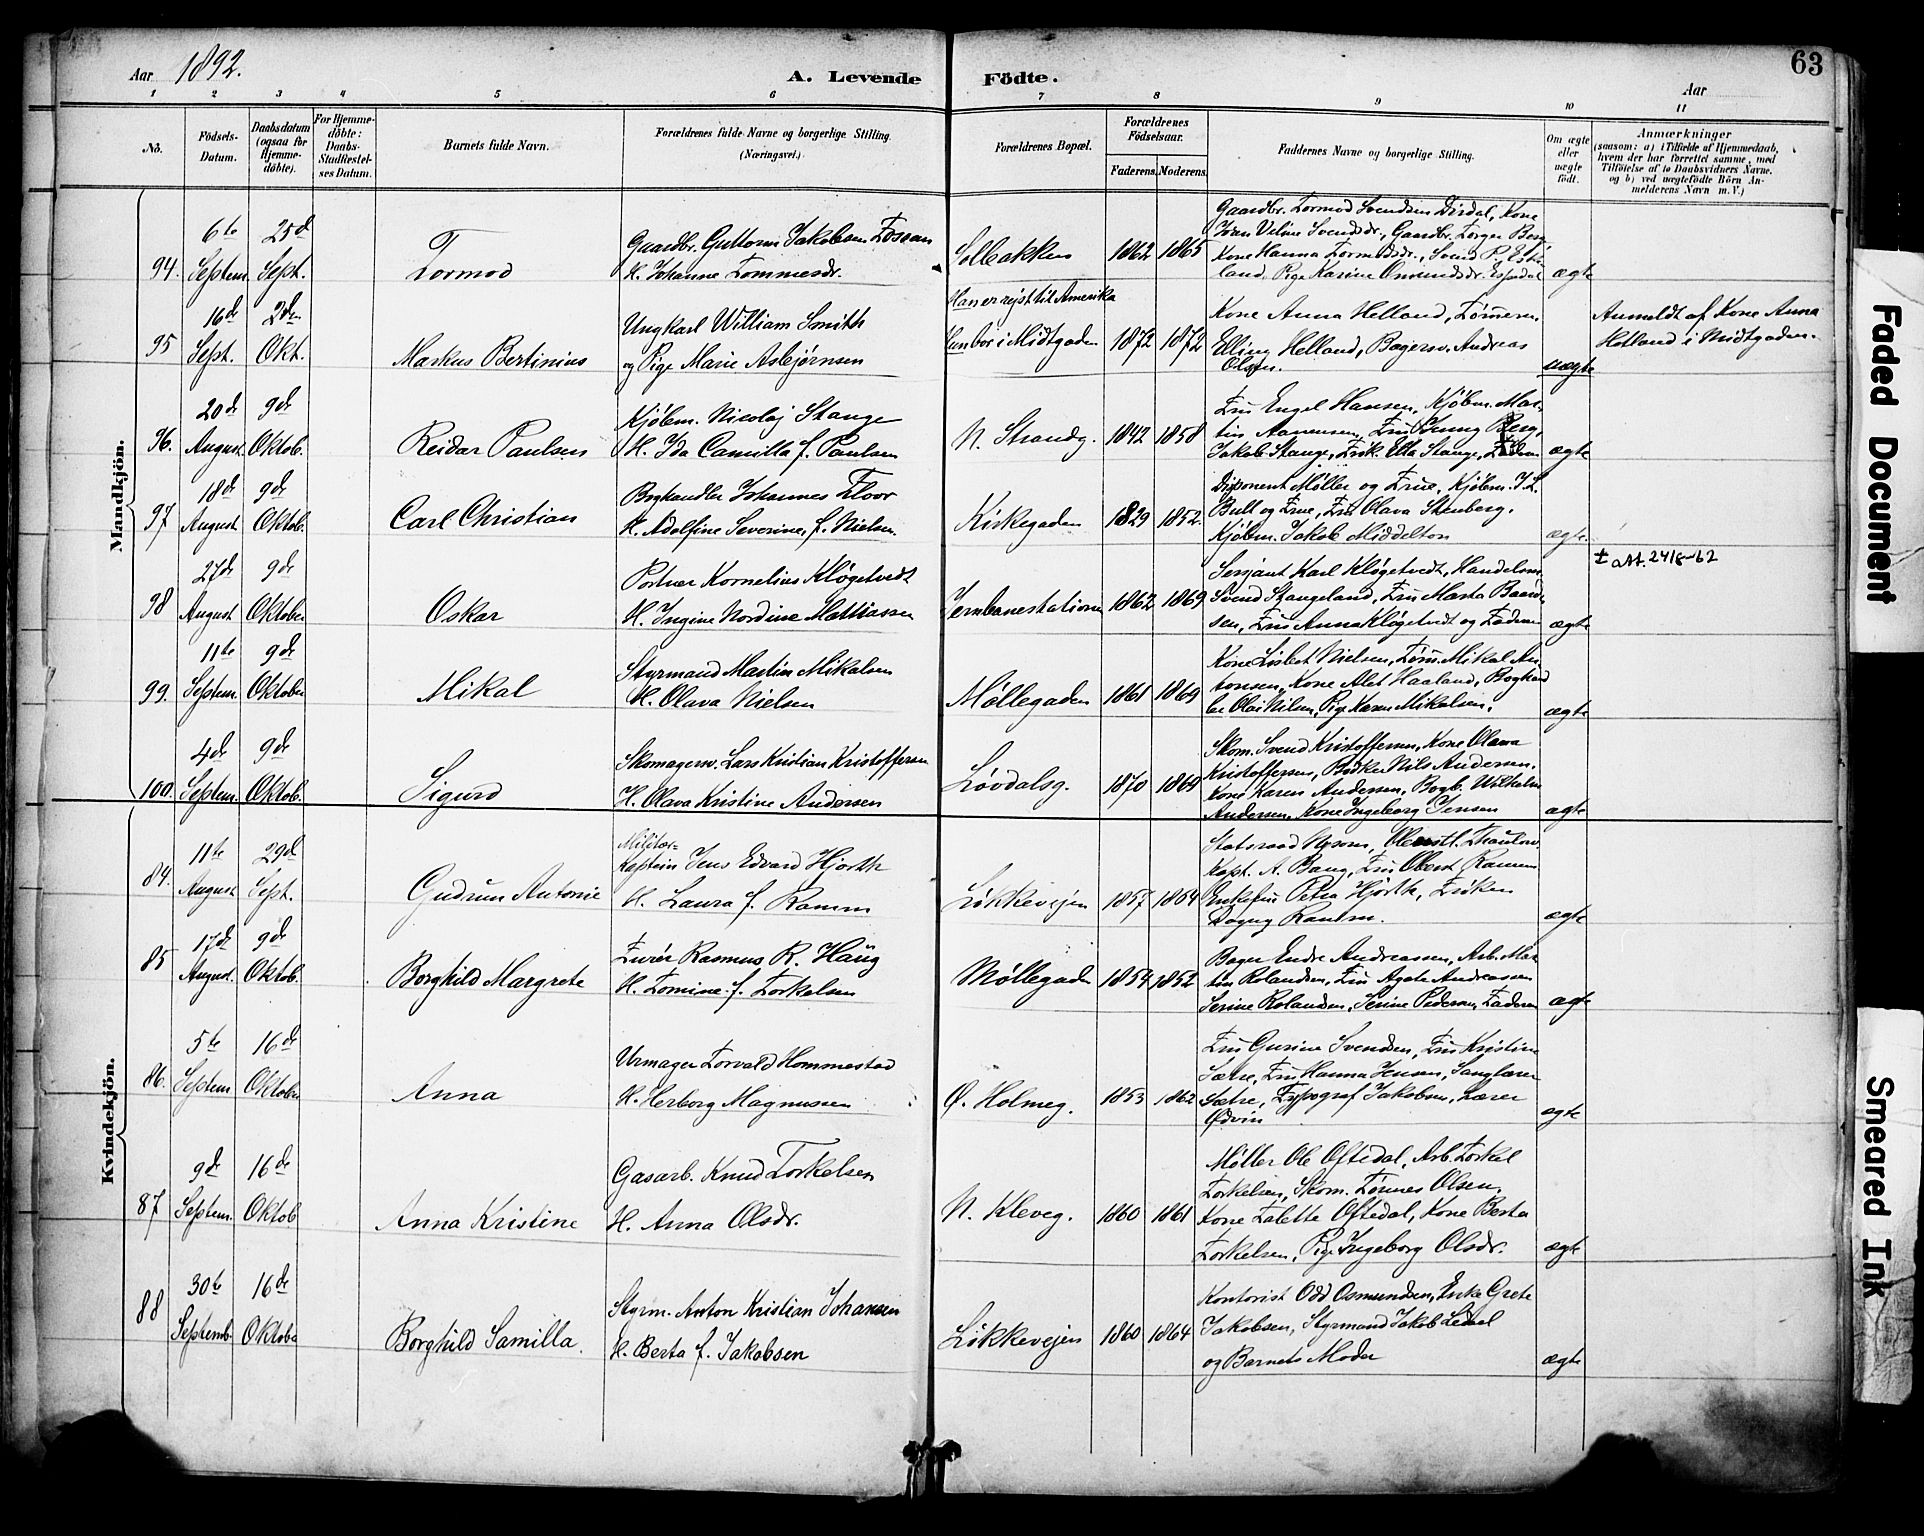 63
Aar 1892.
A. Levende Födte.
Aar
1 2 3 4 5 6 7 8 9 10 11
No.
Födsels-Datum.
Daabsdatum (ogsaa for Hjemme-döbte).
For Hjemme-döbte: Daabs-Stadfæstel-ses Datum.
Barnets fulde Navn.
Forældrenes fulde Navne og borgerlige Stilling.
(Næringsvei.)
Forældrenes Bopæl.
Forældrenes Födselsaar.
Faderens. Moderens.
Faddernes Navne og borgerlige Stilling.
Om ægte eller uægte födt.
Anmærkninger
(saasom: a) i Tilfælde af Hjemmedaab,
hvem der har forrettet samme, med
Tilföielse af to Daabsvidners Navne.
og b) ved uægtefödte Börn An-
melderens Navn m. V.)
Mandkjön.
94. 6te Septem. 25d Sept. Tormod
Gaardbr. Guttorm Jakobsen Fossan
H. Johanne Tommesdr.
Solbakken 1862 1865
Gaardbr. Tormod Svendsen Dirdal, Kone
ægte
95 16d Sept. 2den Okt. Markus Bertinius
Ungkarl William Smith
og Pige Marie Asbjørnsen
Han er rejst til Amerika
Hun bor i Midtgaden 1872 1872
Kone Anna Helland,
Elling Helland, Bagersv. Andreas
Olsen.
uægte
Anmeldt af Kone Anna
Helland i Midtgaden.
96. 20d August. 9de Oktob. Reidar Paulsen
Kjøbm. Nicolaj Stange
H. Ida Camilla f. Paulsen
N. Strandg. 1842 1858
Fru Engel Hansen, Kjøbm. Mar-
tin Aanensen, Fru Berg,
Jakob Stange, Frøk. Stange,
ægte
97 18de August. 9de Oktob. Carl Christian
Boghandler Johannes Floor
H. Adolfine Severine, f. Nielsen.
Kirkegaden 1829 1852.
Disponent Møller og Frue, Kjøbm. J. L.
Bull og Frue, Fru Olava Stenberg,
Kjøbm. Jakob Middelton
ægte.
98 27de August 9de Oktober Oskar
Portner Kornelius Kløgetvedt
H. Ingine Nordine Mattiassen
Jernbanestationen 1862 1869
Sersjant Karl Kløgetvedt, Handelsm.
Svend Stangeland, Fru Marta Baard-
sen, Fru Anna Kløgetvedt og Faderen
ægte
± att. 24/8-62
99. 11te Septem. 9de Oktober Mikal
Styrmand Martin Mikalsen
H. Olava Nielsen
Møllegaden 1861 1869
Kone Lisbet Nielsen, Mikal An-
tonsen, Kone Alet Haaland,
Olai Nilsen, Pige Karen Mikalsen.
ægte
100. 4de Septem. 9de Oktob. Sigurd
Skomagersv. Lars Kristian Kristoffersen
H. Olava Kristine Andersen
Løvdalsg. 1870 1869
Skom. Svend Kristoffersen, Kone Olava
Kristoffersen, Bødker Nils Andersen.
Kone Karen Andersen, Bogb. Wilhelm
Andersen, Kone Ingeborg Jensen
ægte
Kvindekjön.
84. 11te August 29d Sept. Gudrun Antonie
Militær-
Kaptein Jens Edvard Hjorth
H. Laura f. Ramm
Løkkevejen 1857 1864
Statsraad Nysom, Oberstl. Thaulow
Kapt. A. Bang, Fru Oberst Ramm
Enkefru Petra Hjorth, Frøken
Dagny Ramm.
ægte
85 17de August. 9de Oktob. Borghild Margrete
Furér Rasmus R. Haug
H. Tomine f. Torkelsen
Møllegade 1854 1852
Bager Endre Andreassen, Arb. Mar
tin Rolandsen, Fru Agate Andreassen
Serine Rolandsen, Serine Pedersen, Faderen
ægte
86. 5te Septem 16de Oktober Anna
Urmager Torvald Hommestad
H. Herborg Magnussen
Ø. Holmeg. 1853 1862
Fru Gurine Svendsen, Fru Kristine
Sætre, Fru Hanna Jensen, Sanglærer
Sætre, Typograf Jakobsen, Lærer
Ødvin
ægte
87 9de Septem. 16de Oktob Anna Kristine
Gasarb. Knud Torkelsen
H. Anna Olsdr.
N. Kleveg. 1860 1861
Møller Ole Oftedal, Arb. Torkel
Torkelsen, Skom. Tønnes Olsen,
Kone Talette Oftedal, Kone Berta
Torkelsen, Pige Ingeborg Olsdr.
ægte
88 30te Septemb. 16de Oktober Borghild Samilla.
Styrm. Anton Kristian Johansen
H. Berta f. Jakobsen
Løkkevejen 1860 1864
Kontorist Odd Osmundsen, Enke Grete
Jakobsen, Styrmand Jakob Ledal
og Barnets Moder
ægte
Faded Document
Smeared Ink